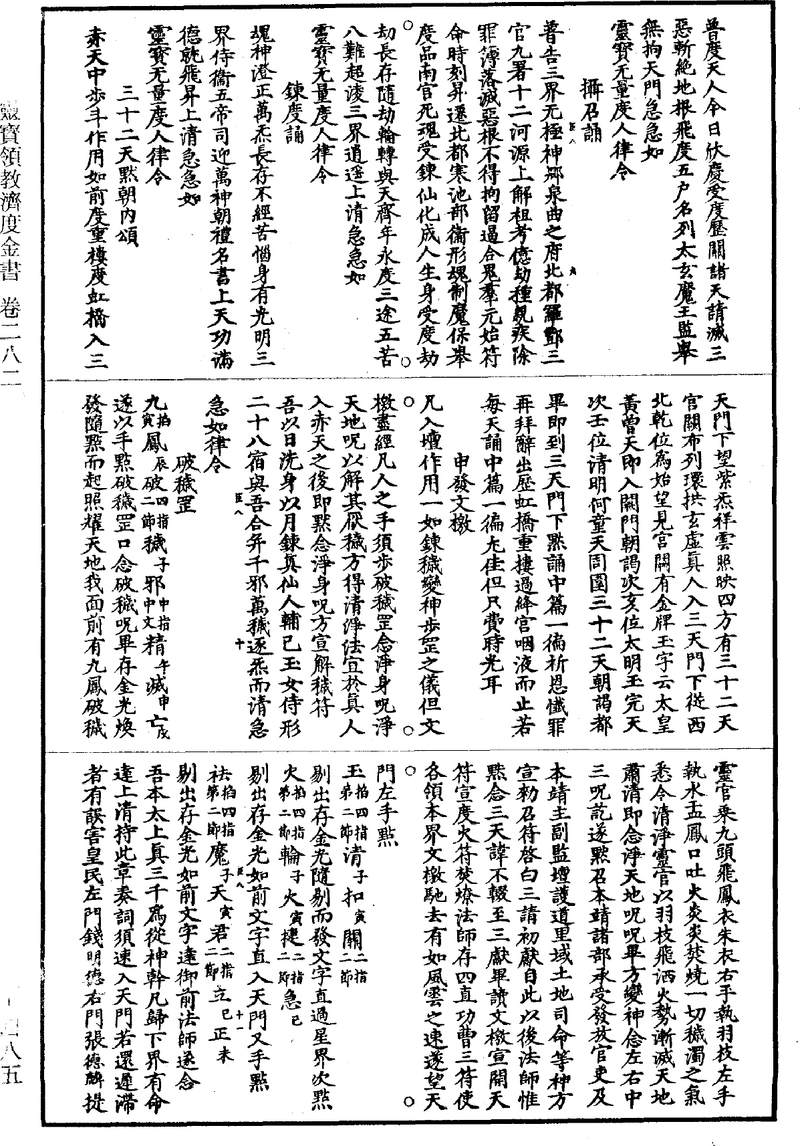 普度天人今日欣慶受度歷關諸天請滅三
惡斬絕地根飛度五户名列太玄魔王監舉
無拘天門急急如
靈寶无量度人律令
攝召誦
普告三界无極神鄉泉曲之府北都羅酆三
官九署十二河源上解祖考億劫種親疾除
罪簿落滅惡根不得拘留逼合鬼羣元始符
命時刻昇遷北都寒池部衛形魂制魔保舉
度品南宫死魂受鍊仙化成人生身受度劫
劫長存隨劫輪轉與天齊年永度三途五苦
八難超淩三界逍遥上清急急如
靈寶无量度人律令
鍊度誦
魂神澄正萬炁長存不經苦惱身有光明三
界侍衛五帝司迎萬神朝禮名書上天功滿
德就飛昇上清急急如
靈寶无量度人律令
三十二天默朝內頌
赤天中步斗作用如前度重樓度虹橋入三
天門下望紫炁祥雲照映四方有三十二天
宫闕布列環拱玄虛真人入三天門下從西
北乾位爲始望見宫闕有金牌玉字云太皇
黃曾天即入闕門朝謁次亥位太明玉完天
次壬位清明何童天周圍三十二天朝謁都
畢即到三天門下默誦中篇一徧祈恩懺罪
再拜辭出歷虹橋重樓過絳宫咽液而止若
每天誦中篇一徧尤佳但只費時光耳
申發文檄
凡入壇作用一如鍊穢變神步罡之儀但文
檄盡經凡人之手須步破穢罡念淨身呪淨
天地呪以解其厭穢方得清淨法宜於真人
入赤天之後即默念淨身呪方宣解穢符
吾以日洗身以月鍊真仙人輔己玉女侍形
二十八宿與吾合并千邪萬穢逐炁而清急
急如律令
破穢罡
九寅掐鳳辰破四指二節穢子邪中指中文精午滅申亡戌
遂以手點破穢罡口念破穢呪畢存金光煥
發隨點而起照耀天地我面前有九鳳破穢
靈官乘九頭飛鳳衣朱衣右手執羽枝左手
執水盂鳳口吐火炎炎焚燒一切穢濁之氣
悉令清淨靈官以羽枝飛洒火勢漸滅天地
肅清即念淨天地呪呪畢方變神念左右中
三呪訖遂默召本靖諸部承受發放官吏及
本靖主副監壇護道里域土地司命等神方
宣勑召符啓白三請初獻自此以後法師惟
默念三天諱不輟至三獻畢讀文檄宣開天
符宣度火符焚燎法師存四直功曹三符使
各領本界文檄馳去有如風雲之速遂望天
門左手點
玉掐四指第二節清子扣寅關二指二節
剔出存金光隨剔而發文字直過星界次點
火掐四指第二節輪子火寅捷二指二節急已
剔出存金光如前文字直入天門又手點
祛掐四指第二節魔子天寅君二指二節立已正未
剔出存金光如前文字達御前法師遂念
吾本太上真三千爲從神幹凡歸下界有命
達上清持此章奏詞須速入天門若還遲滯
者有誤害皇民左門錢明德右門張德麟提
靈寶領教濟度金書 卷二八二
八五